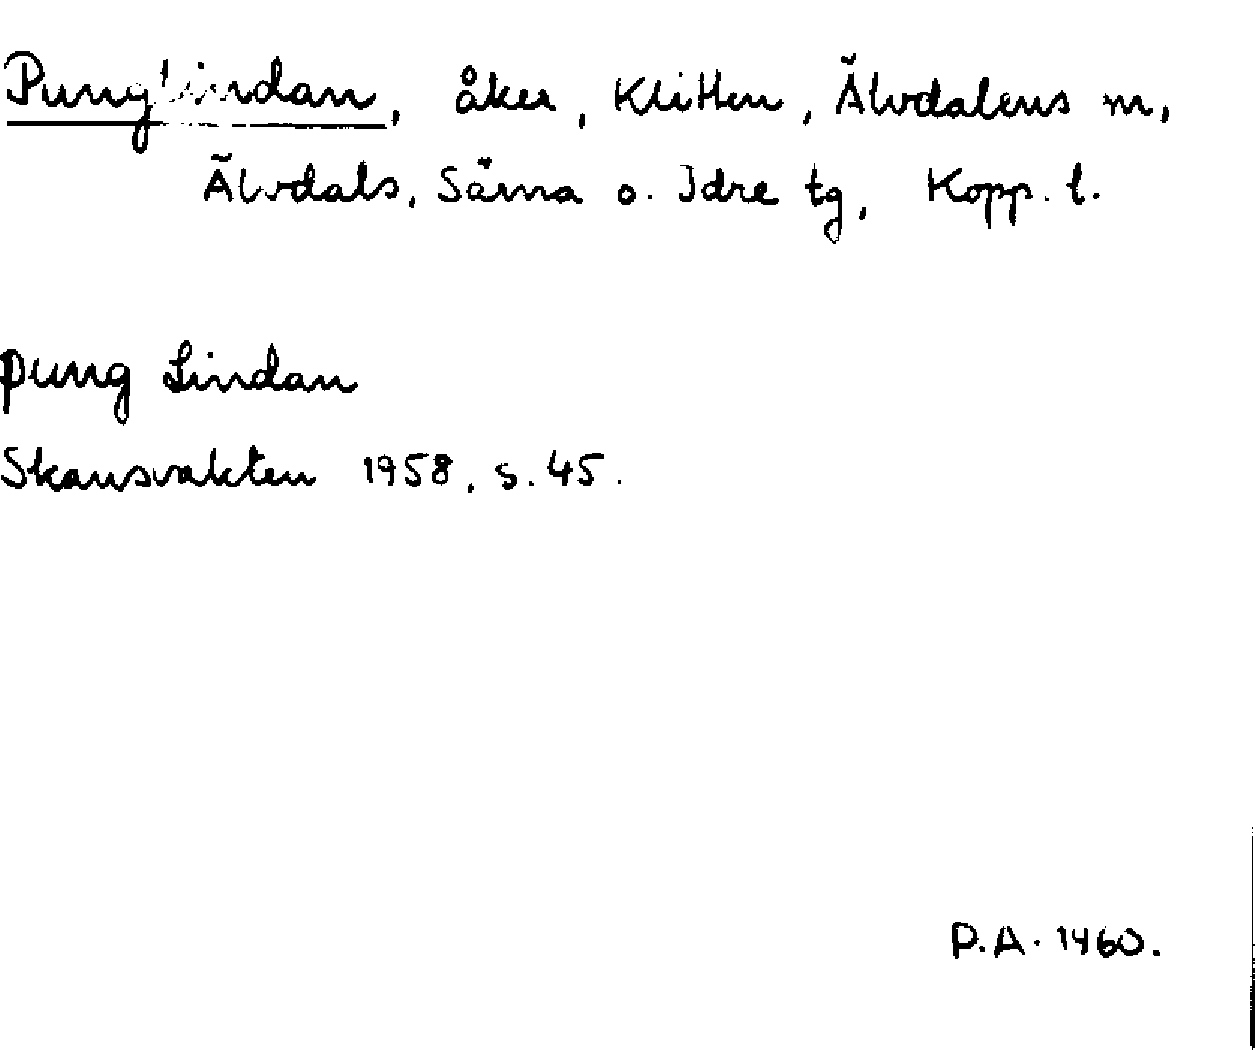 Punglindan, åker, Klitten, Älvdalens m,
Älvdals, Särna o. Idre tg, Kopp. l.
pung Lindan
Skansvakten 1958, s. 45.
P.A. 1460.